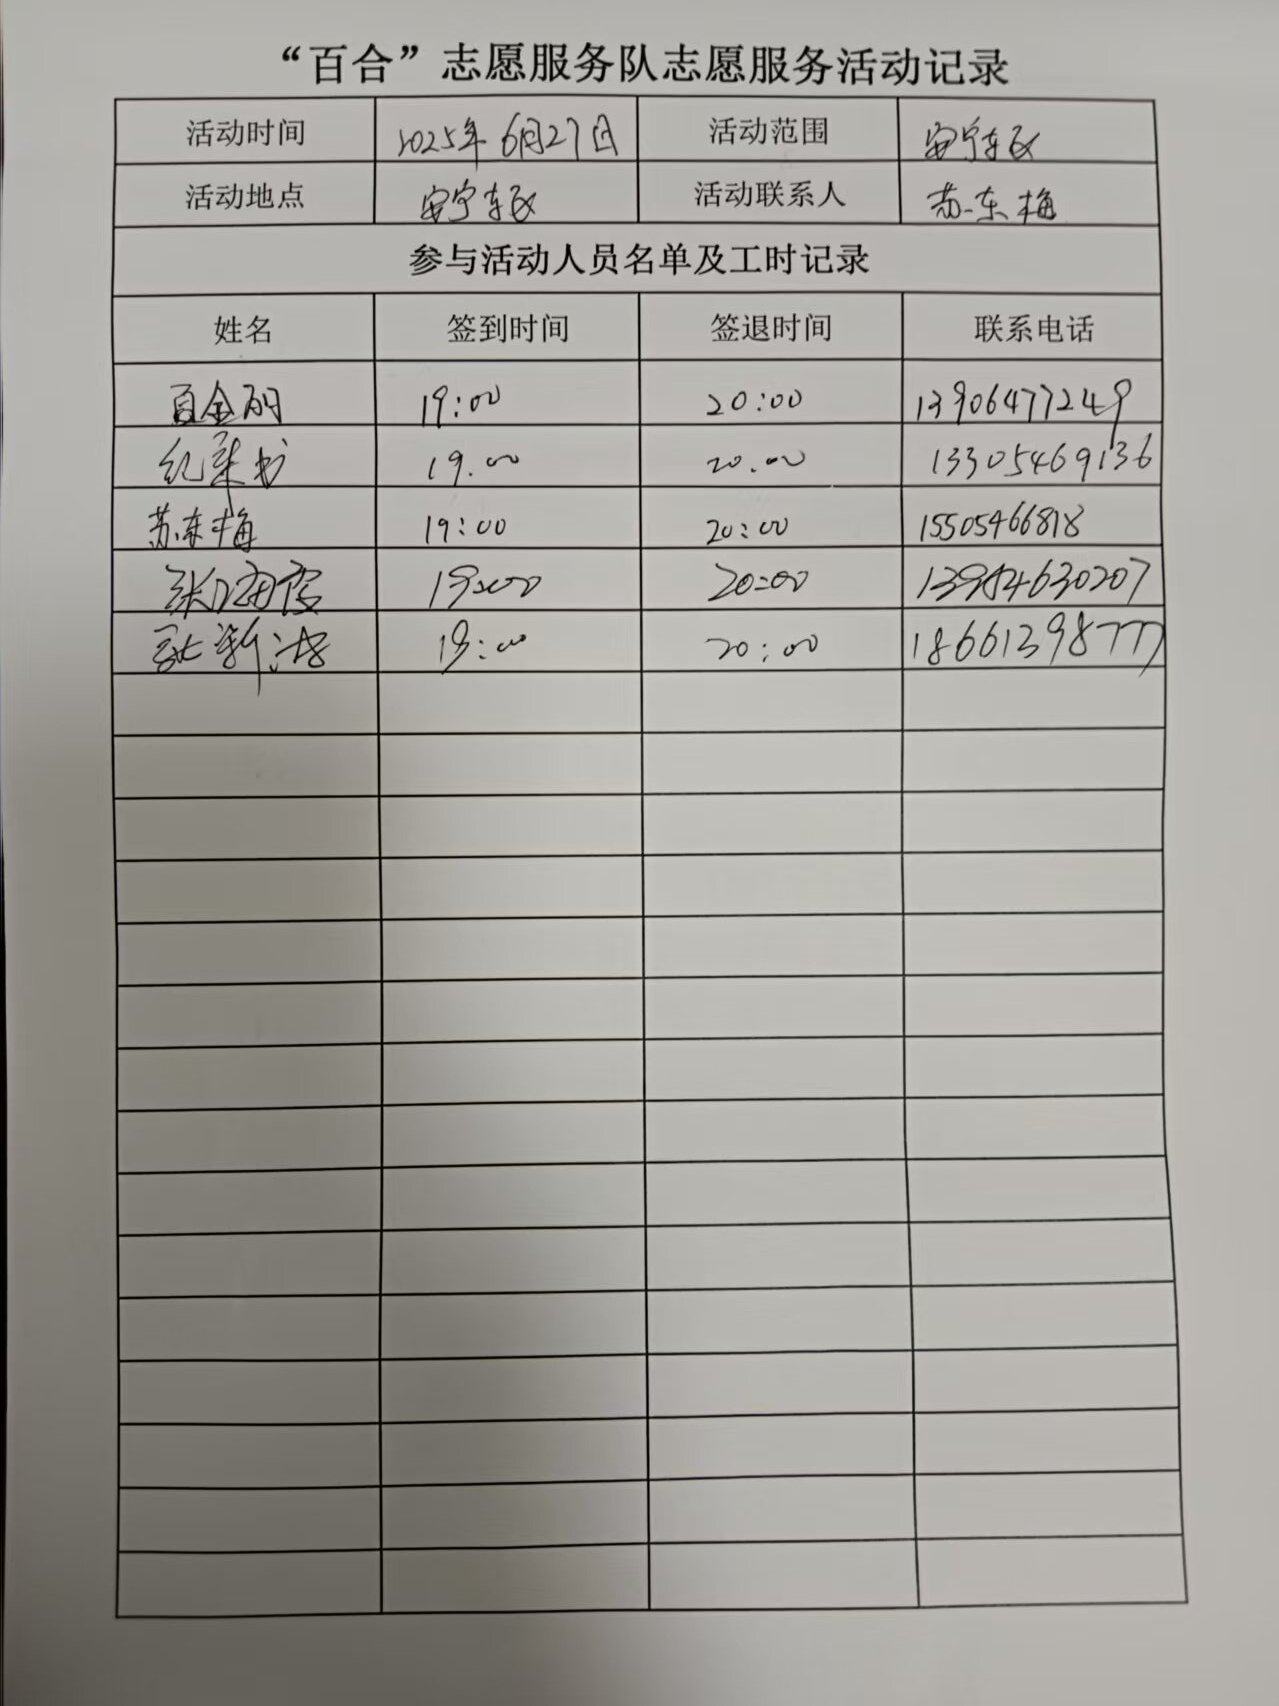 “百合”志愿服务队志愿服务活动记录
活动时间 2025年6月27日 活动范围 安宁东区
活动地点 安宁东区 活动联系人 苏东梅
参与活动人员名单及工时记录
姓名 签到时间 签退时间 联系电话
19:00 20:00 13906477249
19:00 20:00 13305469136
苏东梅 19:00 20:00 15505466818
19:00 20:00 13954630207
19:00 20:00 18661398777